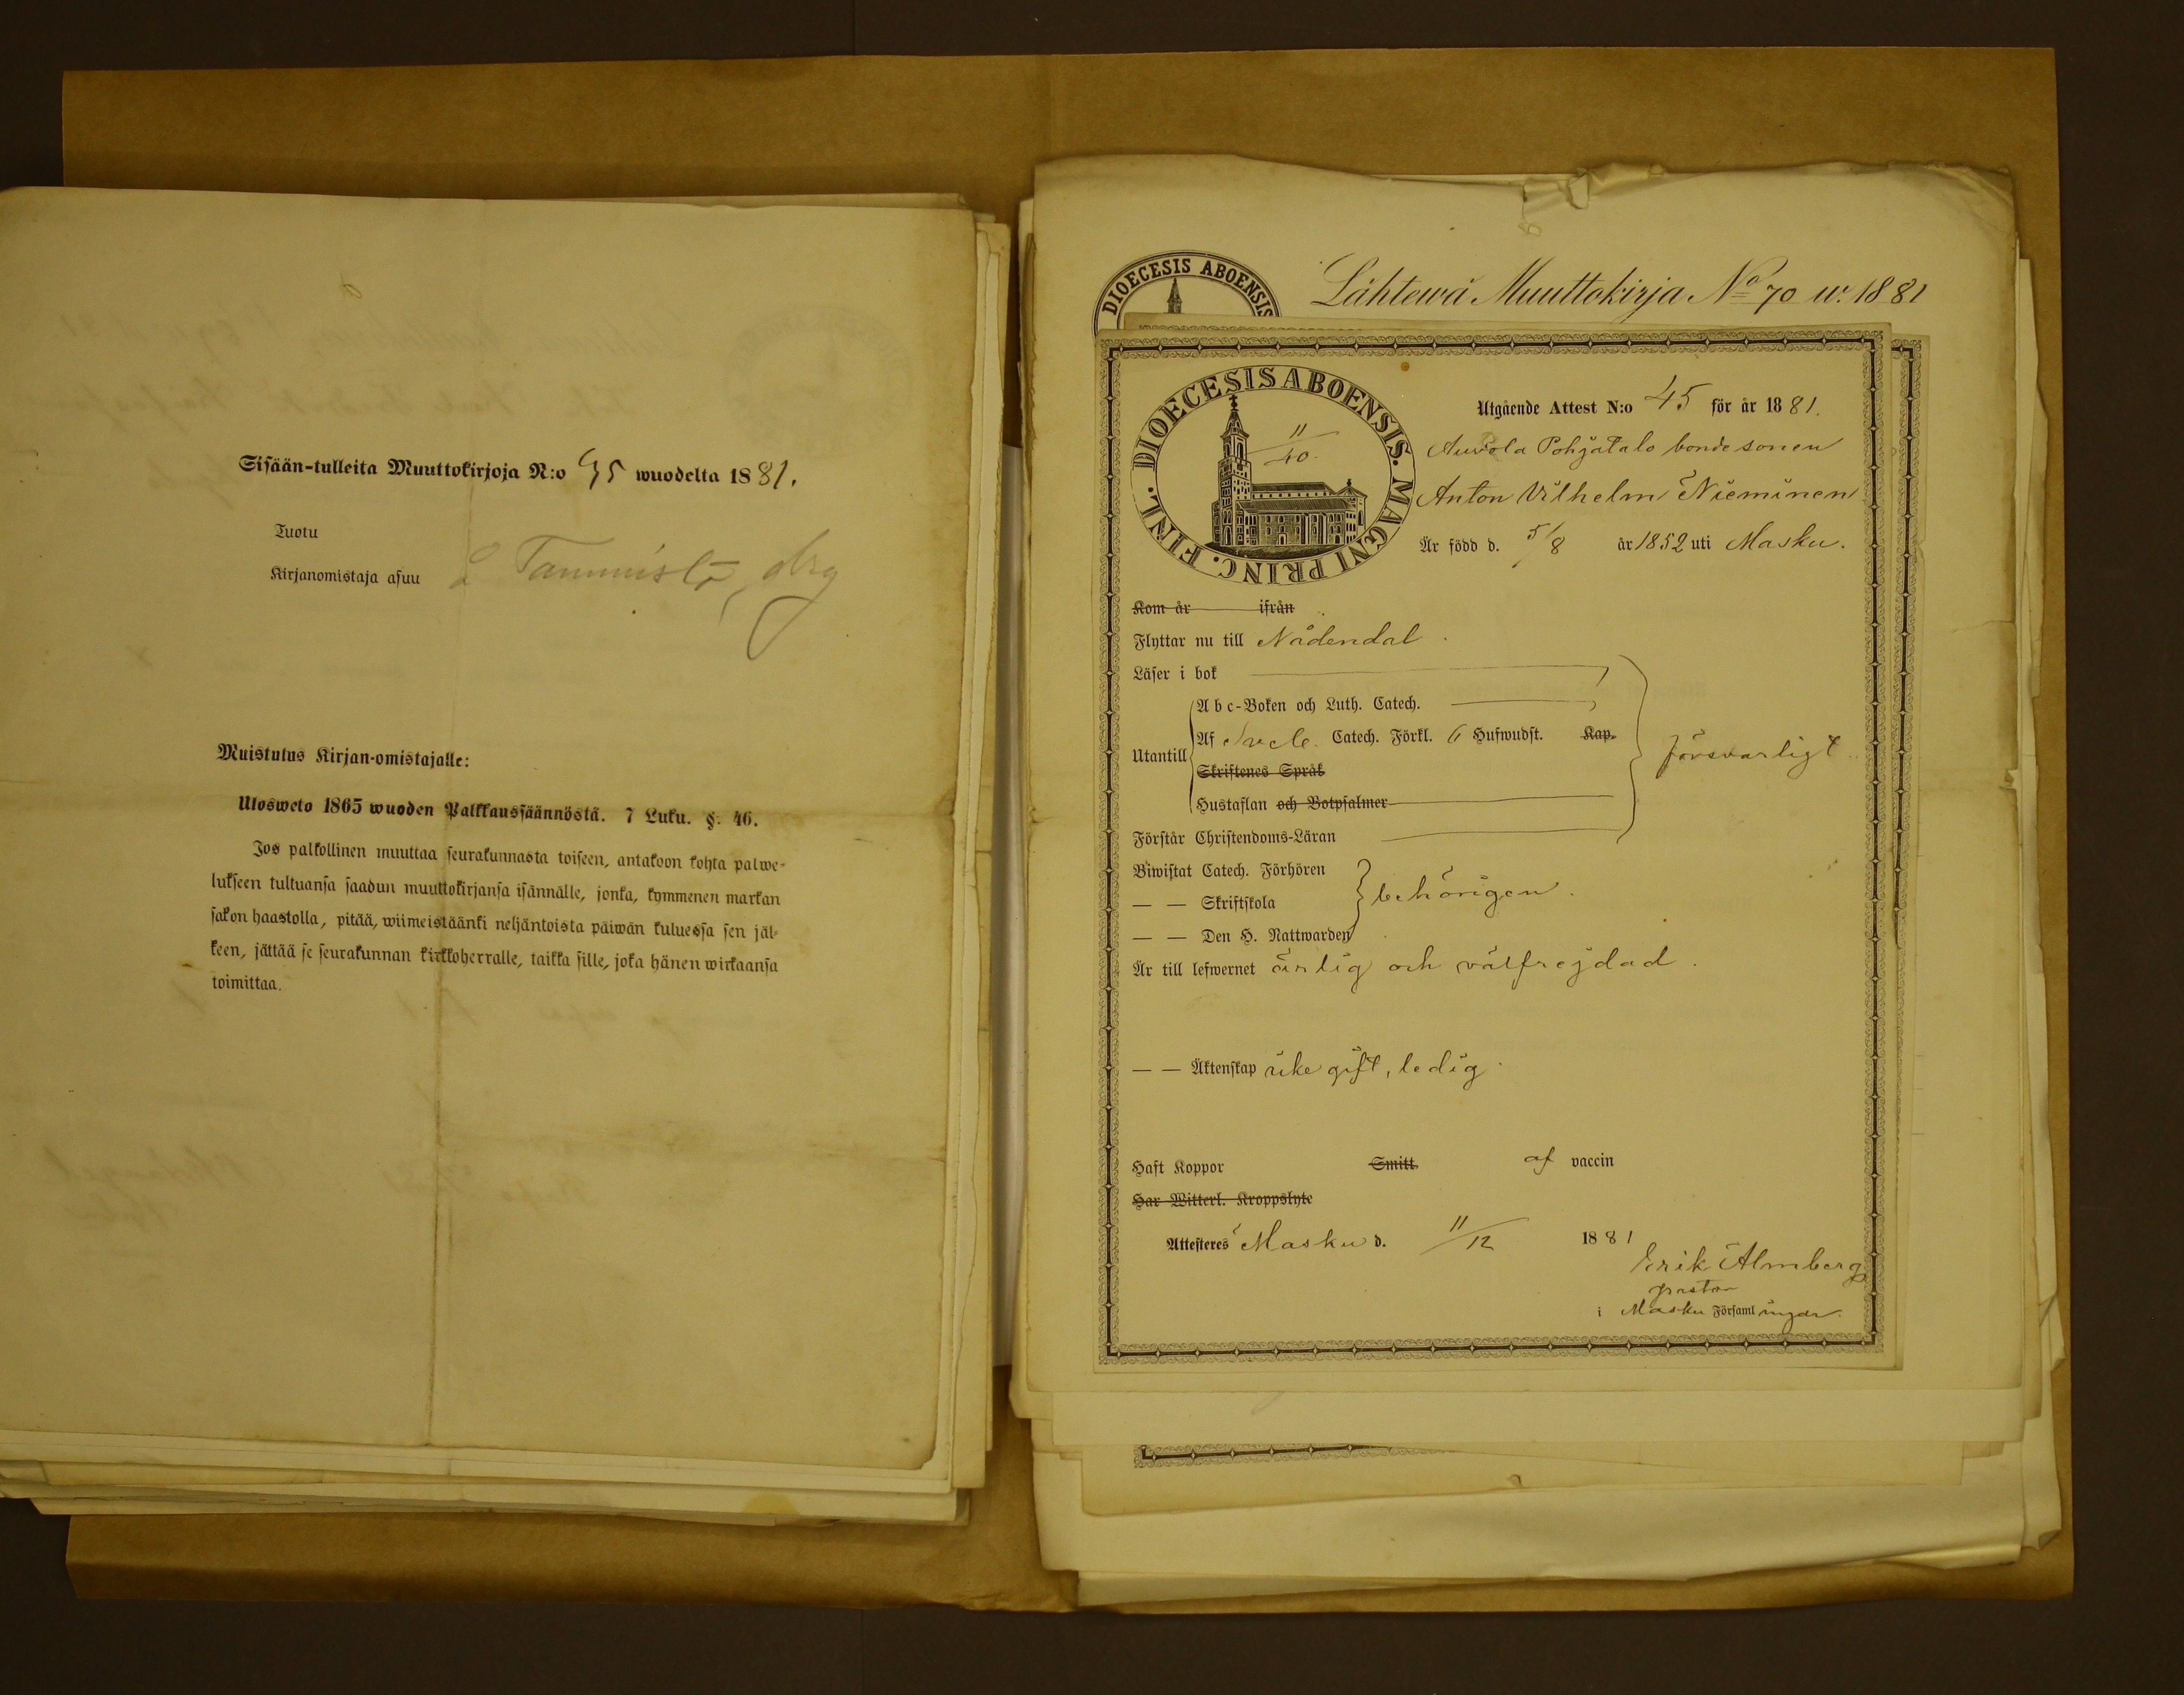 Sisään-tulleita Muuttokirjoja N:o 95 wuodelta 1881.
Tuotu
Kirjanomistaja asuu Tammisto
Muistutus Kirjan-omistajalle:
Ulosweto 1865 wuoden Palkkaussäännöstä. 7 Luku. §. 46.
Jos palkollinen muuttaa seurakunnasta toiseen, antakoon kohta palwe-
lukseen tultuansa saadun muuttokirjansa isännälle, jonka, kymmenen markan
sakon haastolla, pitää, wiimeistäänki neljäntoista päiwän kuluessa sen jäl-
keen, jättää se seurakunnan kirkkoherralle, taikka sille, joka hänen wirkaansa
toimittaa.
DIOECESIS ABOENSIS
Lähtewä Muuttokirja No 70 w. 1881
DIOECESIS ABOENSIS. MAGNI PRINC. FINL.
11/40.
Utgående Attest N:o 45 för år 1881.
Auvola Pohjatalo bondesonen
Anton Vilhelm Nieminen
Är född d. 5/8 år 1852 uti Masku.
Kom år ifrån
Flyttar nu till Nådendal.
Läser i bok
Utantill
A b c-Boken och Luth. Catech.
Af Svcb. Catech. Förkl. 6 Hufwudst. Kap.
Skriftenes Språk
Hustaflan och Botpsalmer
försvarligt
Förstår Christendoms-Läran
Biwistat Catech. Förhören
— — Skriftskola
behörigen.
— — Den H. Nattwarden
Är till lefwernet ärlig och välfrejdad.
— — Äktenskap icke gift, ledig.
Haft Koppor Smitt. af vaccin
Har Witterl. Kroppslyte
Attesteres Masku d. 11/12 1881
Erik Almberg
pastor
i Masku Församlingar.